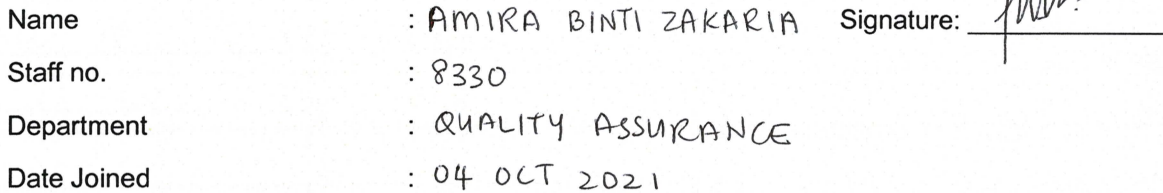 Name : AMIRA BINTI ZAKARIA Signature:
Staff no. : 8330
Department : QUALITY ASSURANCE
Date Joined : 04 OCT 2021